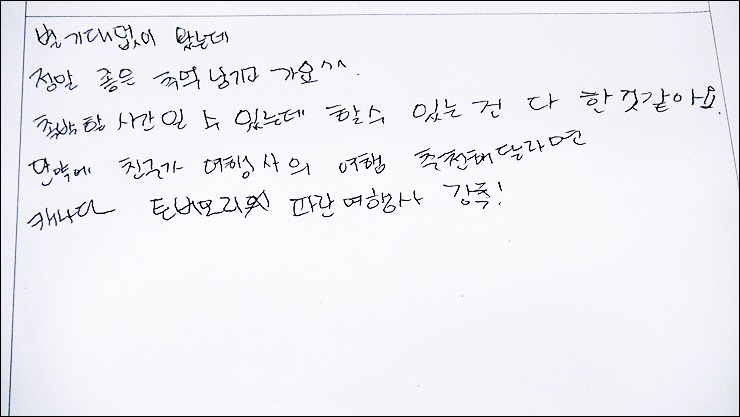 별 기대없이 왔는데
정말 좋은 추억 남기고 가요^^.
촉박한 시간일 수 있는데 할수 있는건 다 한것같아요.
만약에 친구가 여행사의 여행 추천해달라면
캐나다 토버모리 파란여행사 강추!